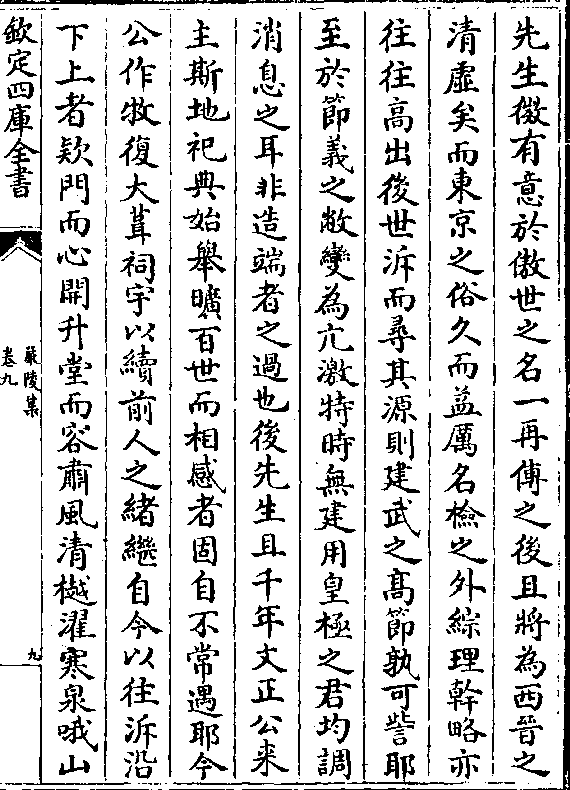 先生微有意於傲世之名一再傳之後且將為西晉之
清虛矣而東京之俗久而益厲名檢之外綜理幹略亦
往往高出後世泝而尋其源則建武之髙節孰可訾耶
至於節義之敝變為亢激特時無建用皇極之君均調
消息之耳非造端者之過也後先生且千年文正公来
主斯地祀典始舉曠百世而相感者固自不常遇耶今
公作牧復大葺祠宇以續前人之緒繼自今以往泝沿
下上者欵門而心開升堂而容肅風清樾濯寒泉哦山
欽定四庫全書
嚴陵集
卷九
九